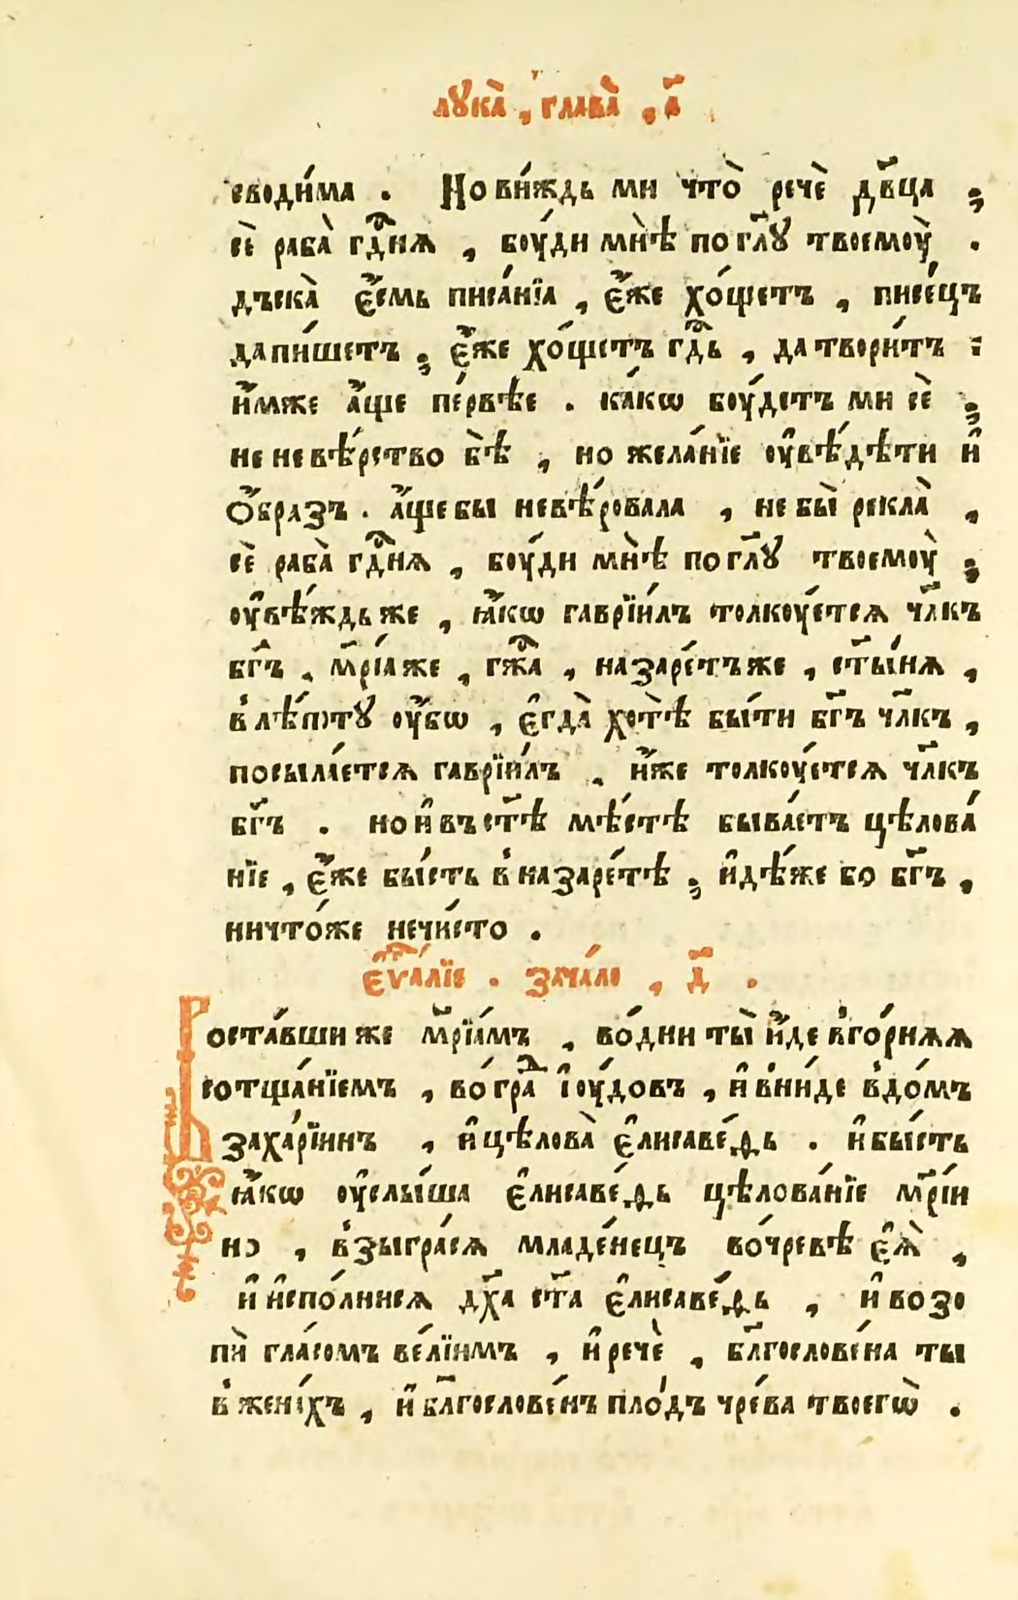 лꙋка̀ , глава̀ , а҃
своди́ма . Но ви́ждь ми что̀ речѐ дв҃ца ;
сѐ раба̀ гдⷭ҇ня , боу́ди мнѣ̀ по гл҃ꙋ твоемоу̀ .
дъска̀ є҆́смь писа́нїа , є҆́же хо́щетъ , писе́цъ
да пи́шетъ ; є҆́же хо́щетъ гдⷭ҇ь , да твори́тъ :
и҆́мже а҆́ще пе́рвѣе . ка́кѡ боу́детъ ми сѐ ;
не невѣ́рство бѣ̀ , но жела́нїе оу҆вѣ́дѣти и҆
ѻ҆́бразъ . а҆́ще бы невѣ́ровала , не бы̀ рекла̀ ,
сѐ раба̀ гдⷭ҇ня , боу́ди мнѣ̀ по гл҃ꙋ твоемоу̀ ;
оу҆вѣ́ждь же , ꙗ҆́кѡ гаврїи́лъ толкоу́етсѧ чл҃къ
бг҃ъ . мр҃і́а же , гжⷭ҇а , назаре́тъ же , ст҃ы́нѧ ,
в лѣ́потꙋ оу҆́бѡ , є҆гда̀ хотѣ̀ бы́ти бг҃ъ чл҃къ ,
посыла́етсѧ гаврїи́лъ . и҆́же толкоу́етсѧ чл҃къ
бг҃ъ . но и҆ въ ст҃ѣ мѣ́стѣ быва́етъ цѣлова́
нїе , є҆́же бы́сть в назаре́тѣ ; и҆дѣ́же бо бг҃ъ ,
ничто́же нечи́сто .
є҆ѵⷢ҇а́лїе . зача́ло , д҃ .
Воста́вши же мр҃їа́мъ , во́ дни ты̀ и҆́де в го́рнѧѧ
со тща́нїемъ , во́ граⷣ і҆оу́довъ , и҆ вни́де в до́мъ
заха́рїинъ , и҆ цѣлова̀ є҆лисаве́ѳь . и҆ бы́сть
ꙗ҆́кѡ оу҆слы́ша є҆лисаве́ѳь цѣлова́нїе мр҃і́и
но , взыгра́сѧ младе́нецъ во́ чревѣ є҆ѧ̀ ,
и҆ и҆спо́лнисѧ дх҃а ст҃а є҆лисаве́ѳь , и҆ возо
пѝ гла́сомъ ве́лїимъ , и҆ речѐ , бл҃гослове́на ты
в жена́хъ , и҆ бл҃гослове́нъ пло́дъ чре́ва твоегѡ̀ .